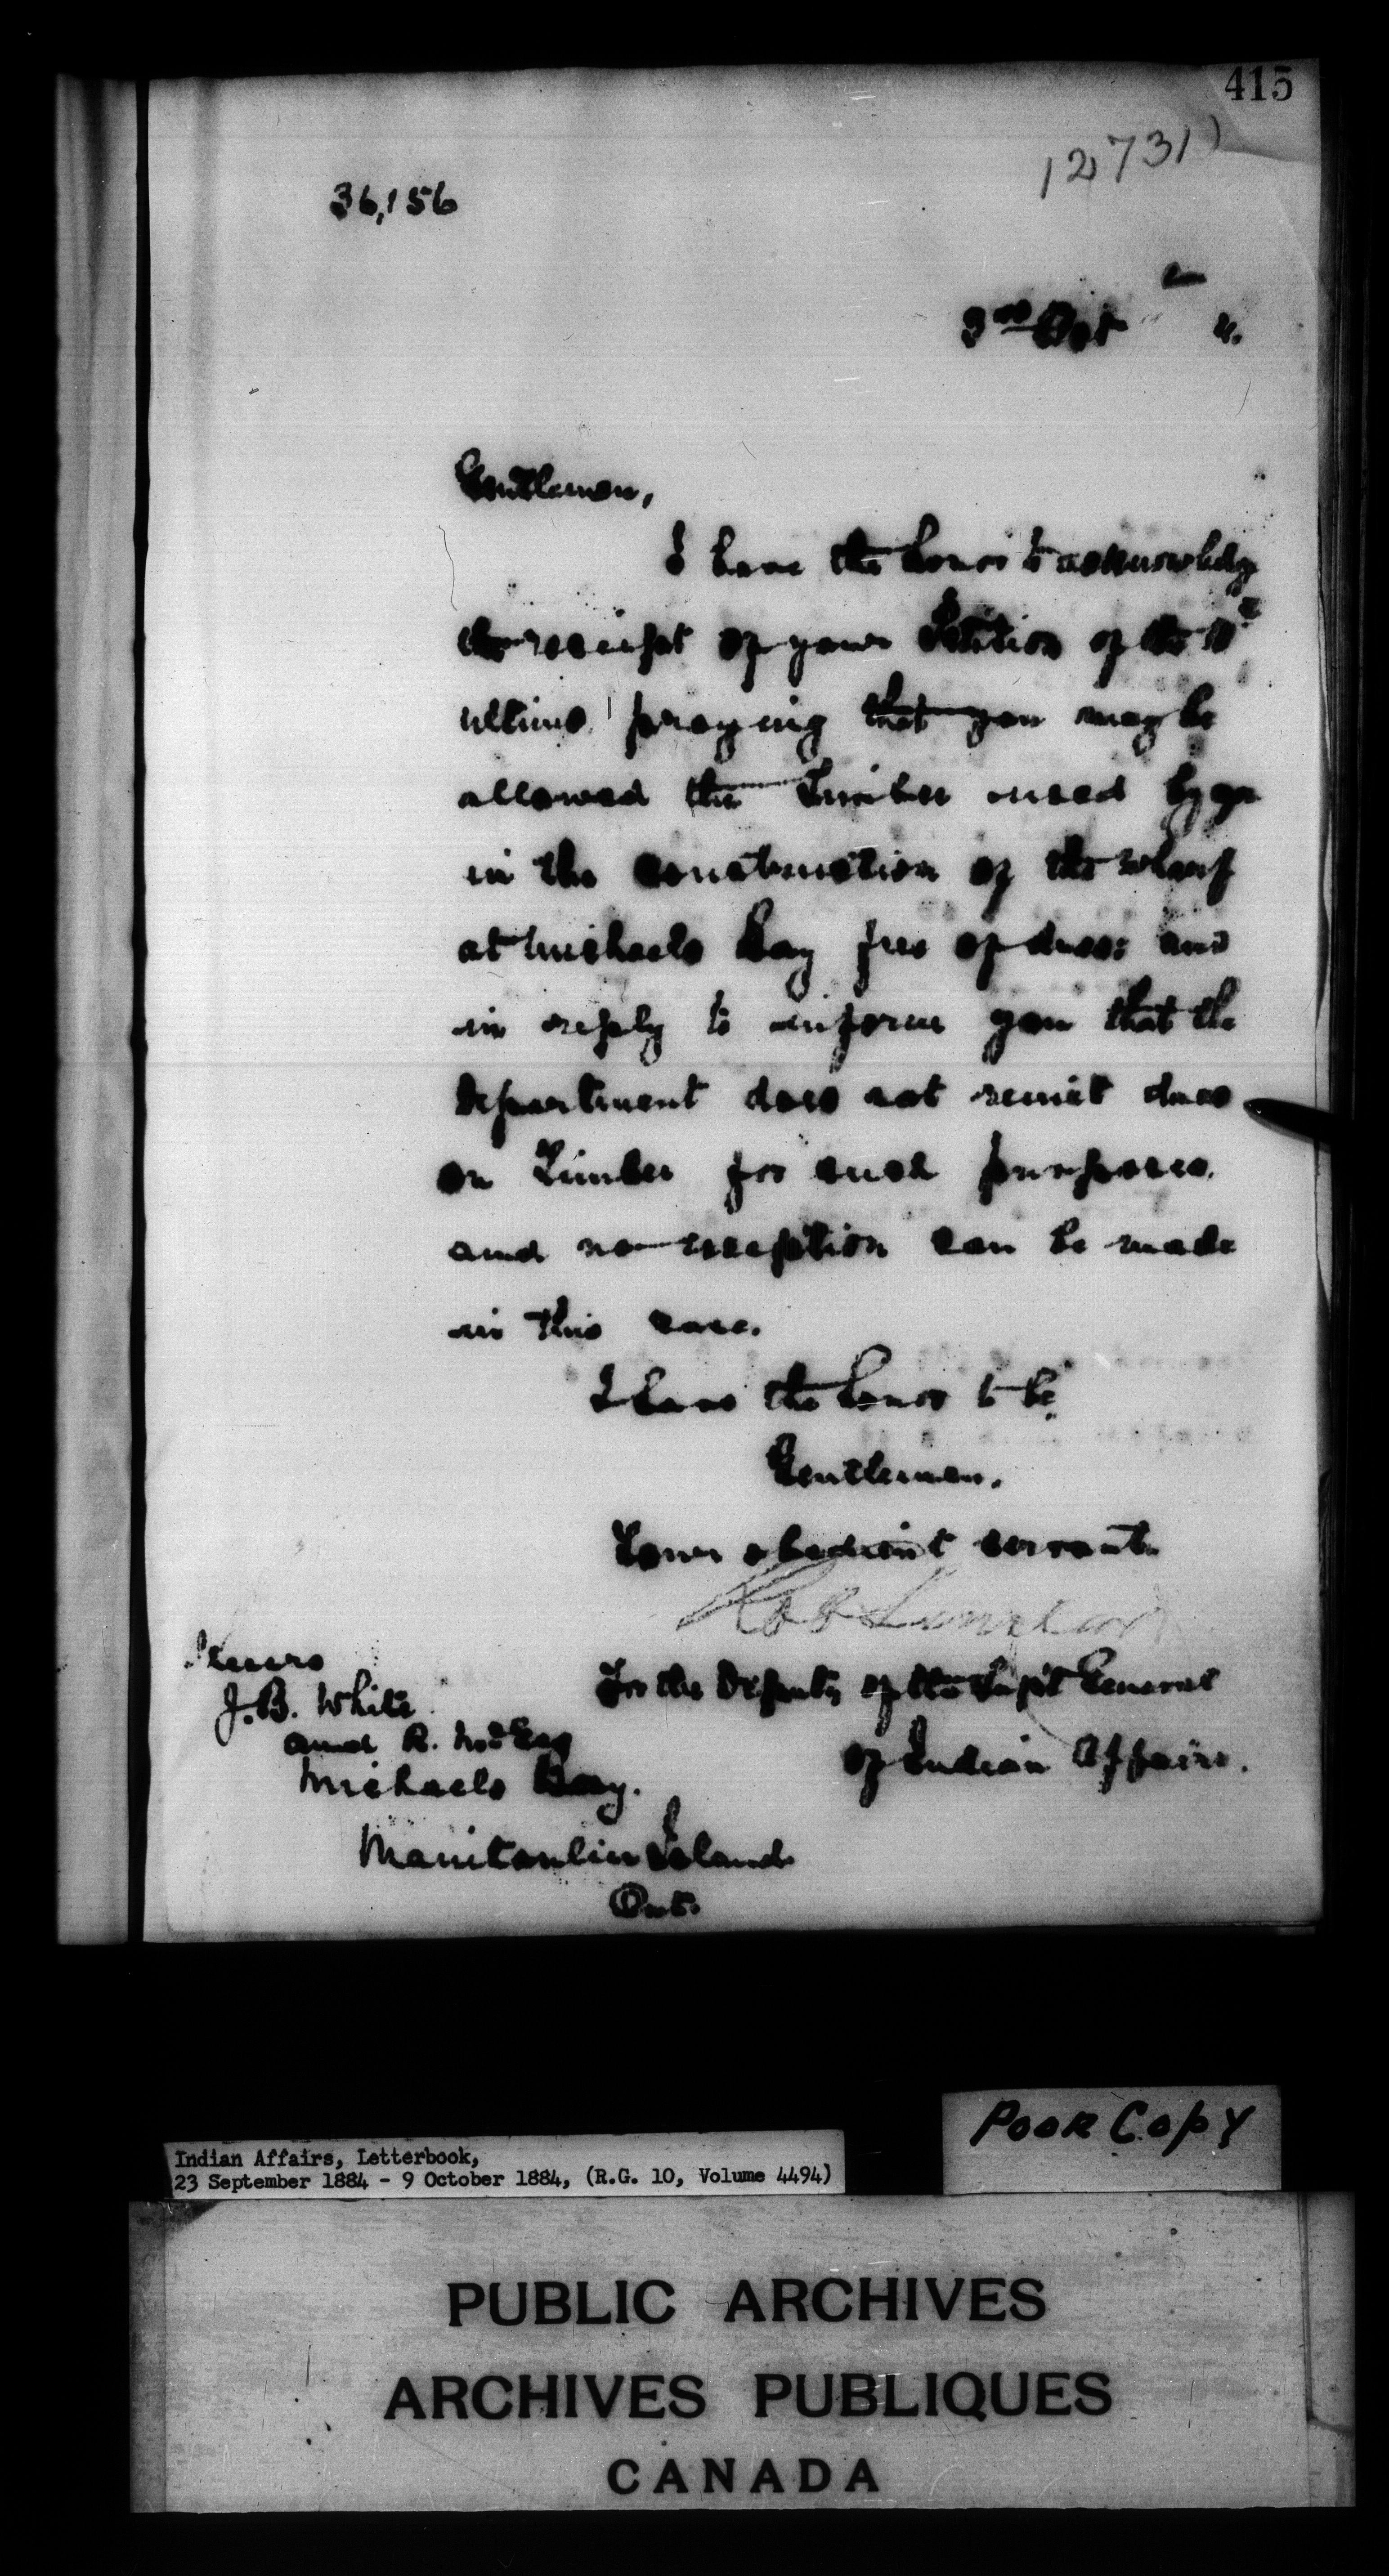 415
12731
36,156
3rd Oct 4.
Gentlemen,
I have the honor to acknowledge
the receipt of your Petition of the
ultimo, praying that you may be
allowed the Timber used by you
in the construction of the wharf
at Michaels Bay free of dues: and
in reply to inform you that the
Department does not remit dues
on Timber for such purposes,
and no exception can be made
in this case.
I have the honor to be
Gentlemen,
Your obedient servant
For the Deputy of the Supt General
of Indian Affairs.
Messrs
J.B. White
and R.
Michaels Bay.
Manitoulin Island
Ont.
Poor Copy
Indian Affairs, Letterbook,
23 September 1884 - 9 October 1884, (R.G. 10, Volume 4494)
PUBLIC ARCHIVES
ARCHIVES PUBLIQUES
CANADA